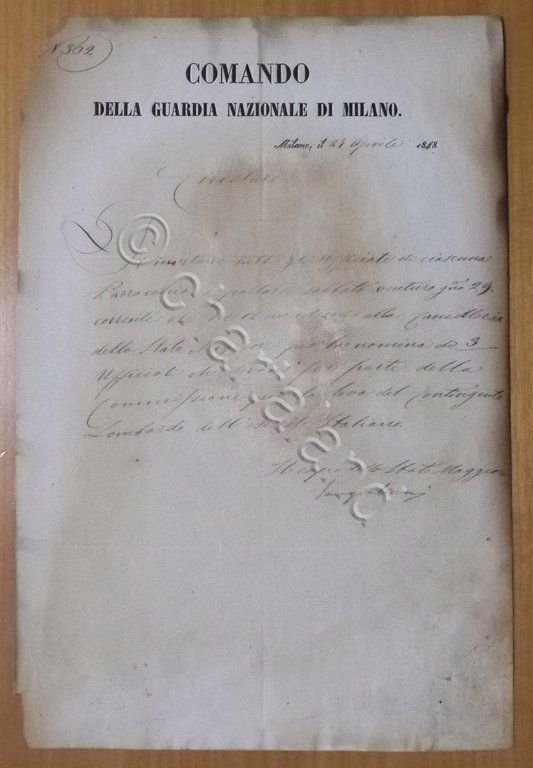 N 362
COMANDO
DELLA GUARDIA NAZIONALE DI MILANO.
Milano, il 24 Aprile 1848
Circolare
S' invitano tutti gli Ufficiali di ciascuna
Parrocchia a portarsi sabbato venturo gno 29
corrente alle 12 meridiane alla Cancelleria
dello Stato Maggiore per la nomina di 3
Ufficiali che far parte della
Commissione per la leva del Contingente
Lombardo dell' Italiano
Il capo dello Stato Maggiore
© chartaland